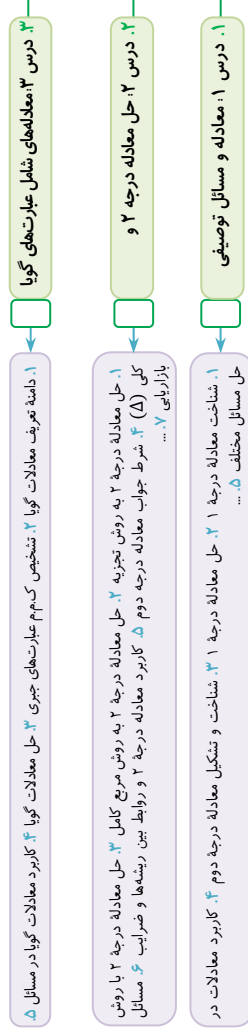 ۱. درس ۱: معادله و مسائل توصیفی
۱. شناخت معادلهٔ درجهٔ ۱ ۲. حل معادلهٔ درجهٔ ۱ ۳. شناخت و تشکیل معادلهٔ درجهٔ دوم ۴. کاربرد معادلات در
حل مسائل مختلف ۵. ...
۲. درس ۲: حل معادله درجه ۲ و
۱. حل معادلهٔ درجهٔ ۲ به روش تجزیه ۲. حل معادلهٔ درجهٔ ۲ به روش مربع کامل ۳. حل معادلهٔ درجهٔ ۲ با روش
کلی (Δ) ۴. شرط جواب معادله درجه دوم ۵. کاربرد معادله درجه ۲ و روابط بین ریشه‌ها و ضرایب ۶. مسائل
بازاریابی ۷. ...
۳. درس ۳: معادله‌های شامل عبارت‌های گویا
۱. دامنهٔ تعریف معادلات گویا ۲. تشخیص ک.م.م عبارت‌های جبری ۳. حل معادلات گویا ۴. کاربرد معادلات گویا در مسائل ۵.